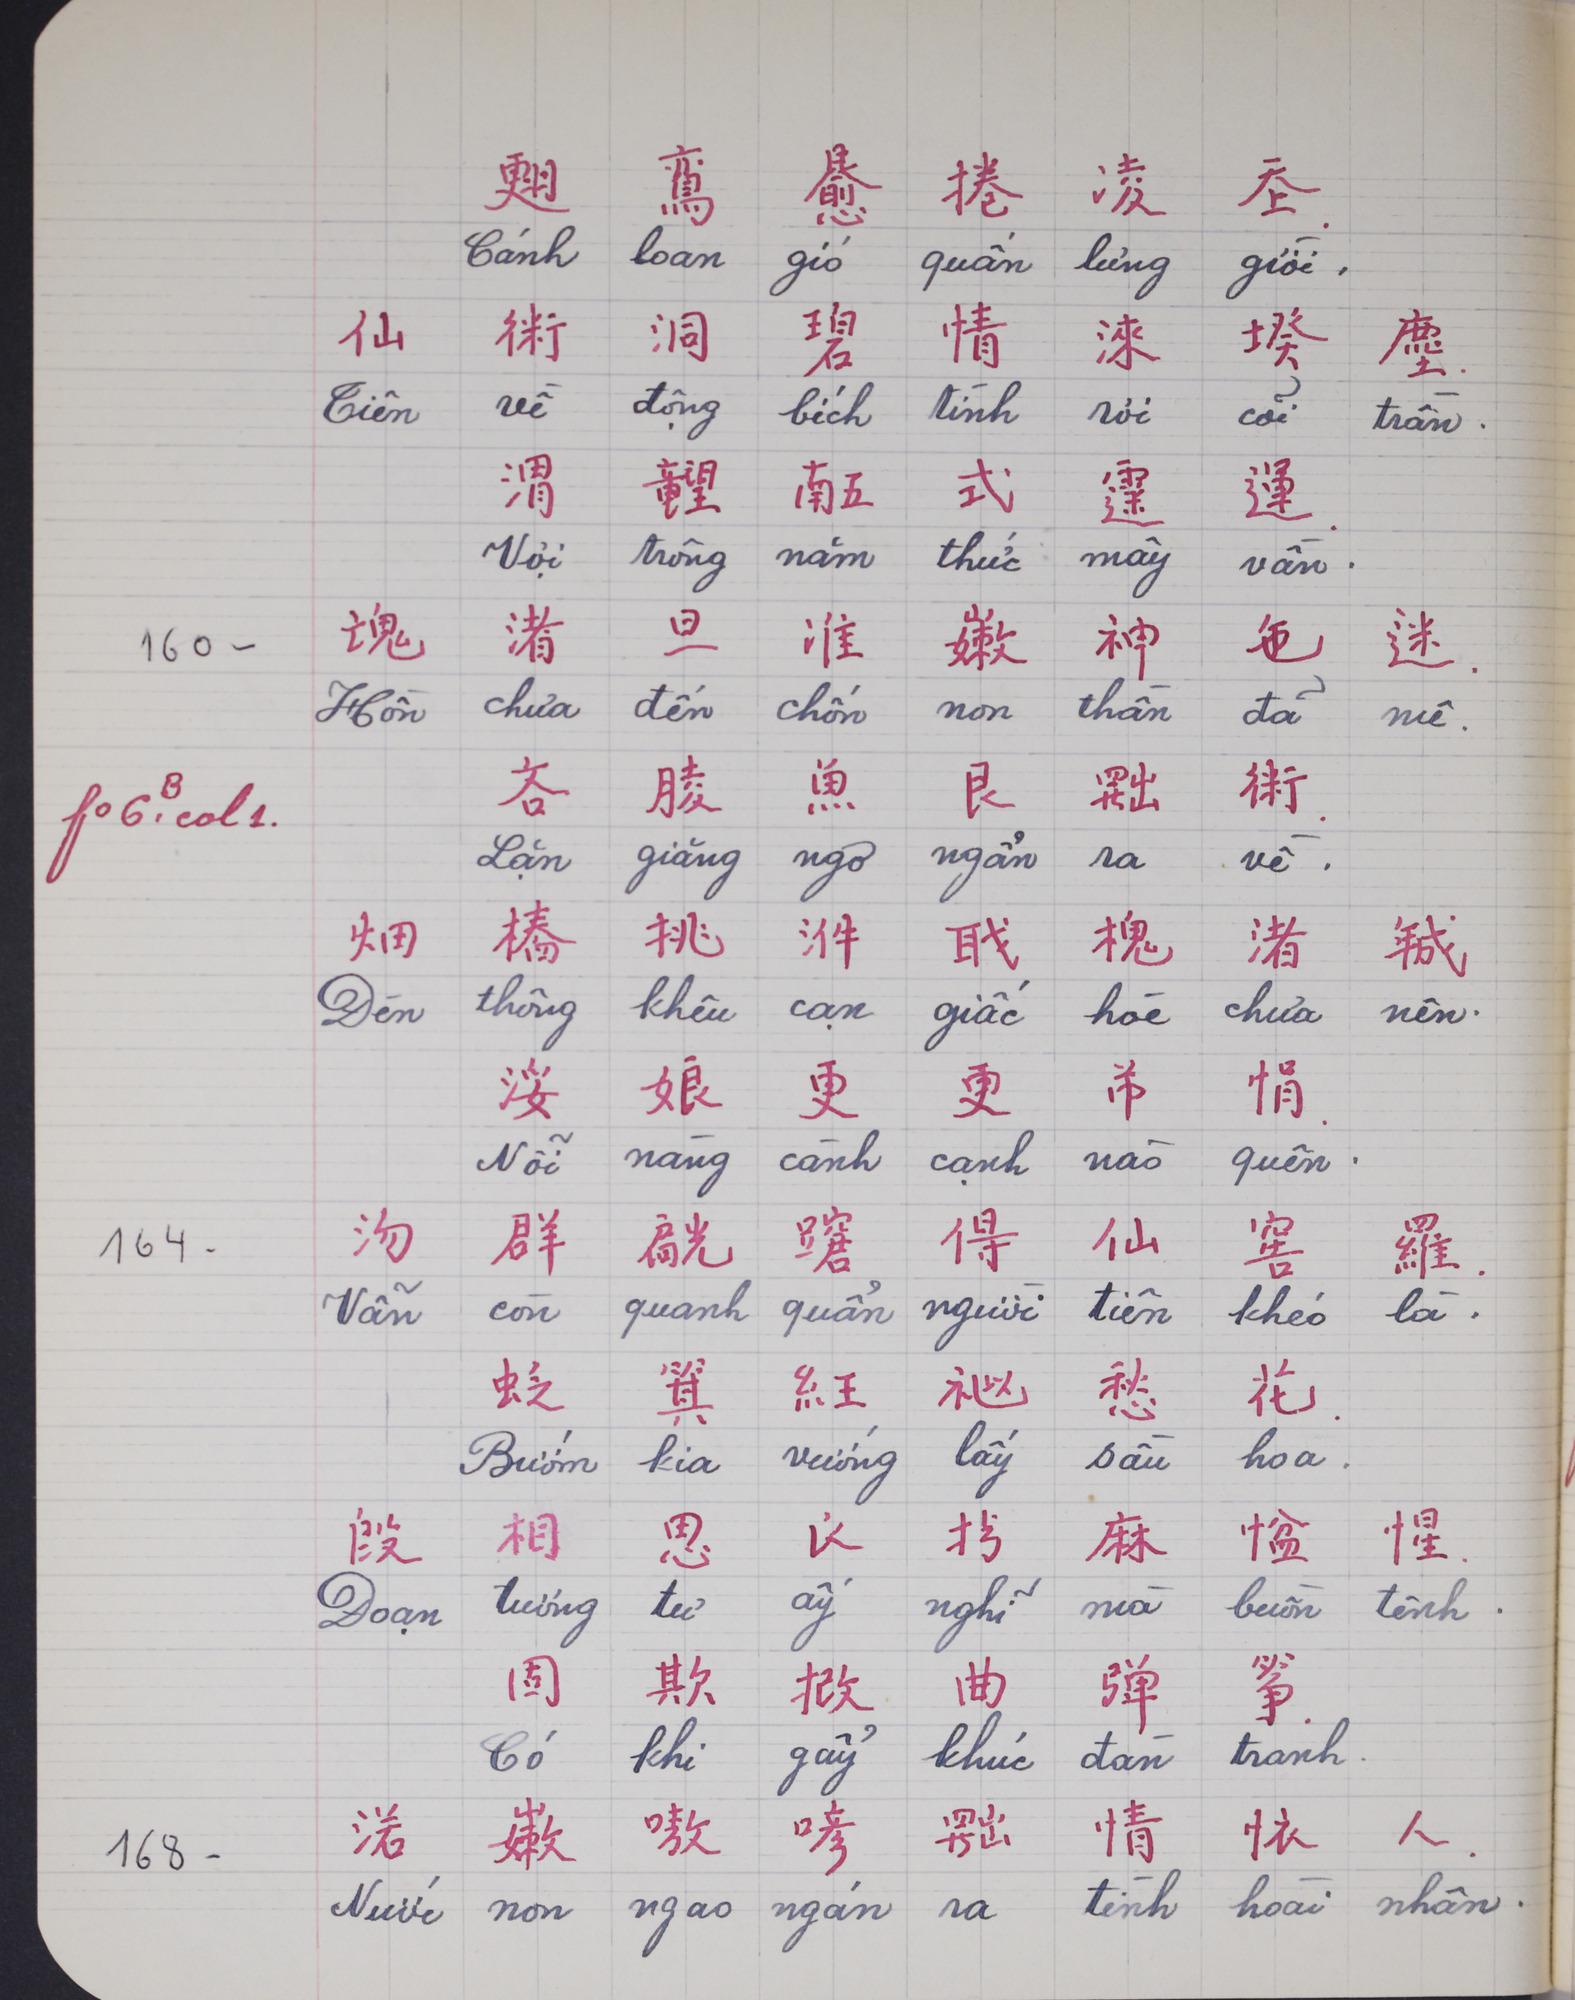 鸞 捲 凌
Cánh loan gió quấn lưng giời.
仙 術 洞 碧 情 淶 塵.
Tiên về động bích tình rời cõi trần.
渭 式 運.
Vời trông năm thức mây vần.
160- 渚 旦 准 神 迷.
Hồn chưa đến chốn non thần đã mê.
fo 6.B col 1. 吝 魚 艮 術.
Lặn giăng ngơ ngẩn ra về.
畑 挑 槐 渚
Đèn thông khêu cạn giấc hoè chưa nên.
娘 更 更 悁.
Nỗi nàng cành cạnh nào quên.
164- 沕 群 得 仙 窖 羅.
Vẫn còn quanh quẩn người tiên khéo là.
愁 花.
Bướm kia vướng lấy sầu hoa.
段 相 思 麻 惺.
Đoạn tương tư ấy nghĩ mà buồn tênh.
固 欺 曲 弹 筝.
Có khi gẩy khúc đàn tranh.
168- 渃 嗷 情 懐 人.
Nước non ngao ngán ra tình hoài nhân.